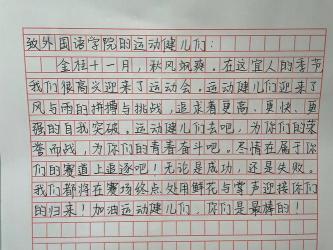 致外国语学院的运动健儿们：
金桂十一月，秋风飒爽。在这宜人的季节
我们很高兴迎来了运动会。运动健儿们迎来了
风与雨的拼搏与挑战，追求着更高、更快、更
强的自我突破。运动健儿们去吧，为你们的荣
誉而战，为你们的青春奋斗吧。尽情在属于你
们的赛道上追逐吧！无论是成功，还是失败。
我们都将在赛场终点处用鲜花与掌声迎接你们
的归来！加油运动健儿们，你们是最棒的！